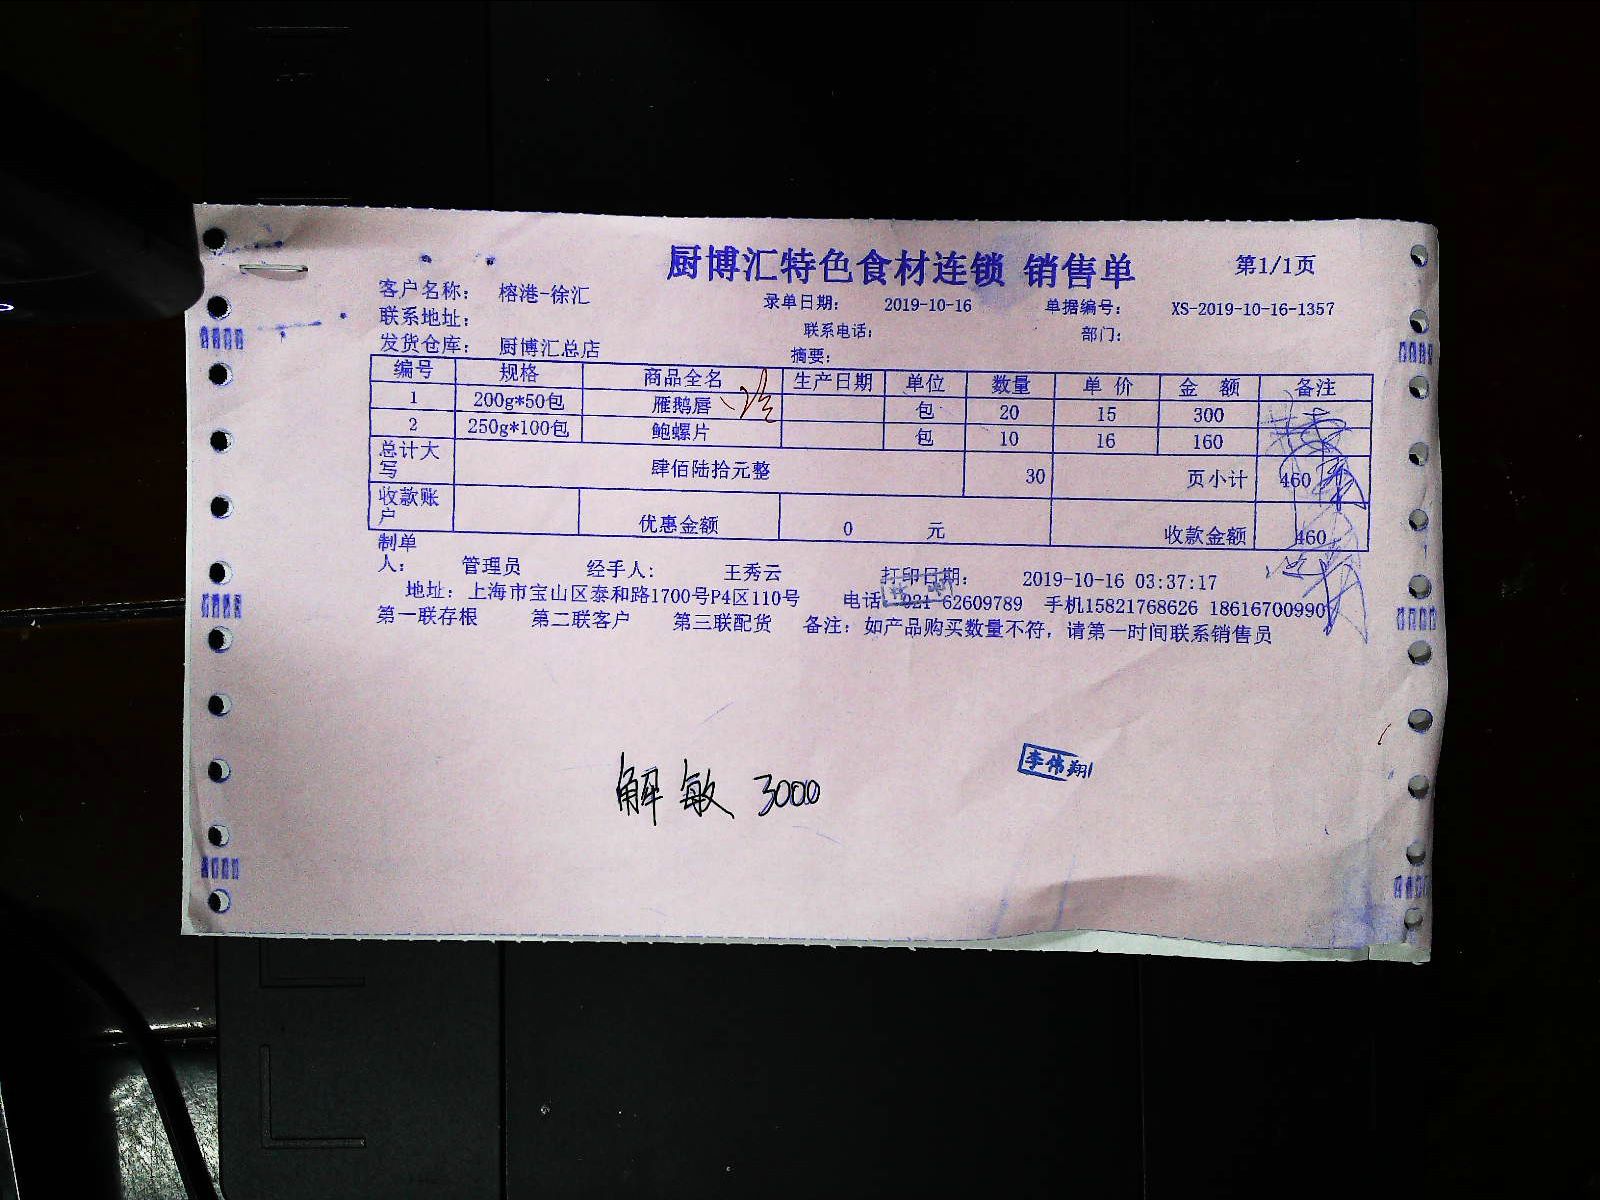 厨博汇特色食材连锁 销售单 第1/1页
客户名称： 榕港-徐汇 录单日期： 2019-10-16 单据编号： XS-2019-10-16-1357
联系地址： 联系电话： 部门：
发货仓库： 厨博汇总店 摘要：
编号 规格 商品全名 生产日期 单位 数量 单 价 金 额 备注
1 200g*50包 雁鹅唇 包 20 15 300
2 250g*100包 鲍螺片 包 10 16 160
总计大写 肆佰陆拾元整 30 页小计 460
收款账户 优惠金额 0 元 收款金额 460
制单人： 管理员 经手人： 王秀云 打印日期： 2019-10-16 03:37:17
地址：上海市宝山区泰和路1700号P4区110号 电话 021-62609789 手机15821768626 18616700990
第一联存根 第二联客户 第三联配货 备注：如产品购买数量不符，请第一时间联系销售员
李伟翔
解敏 3000